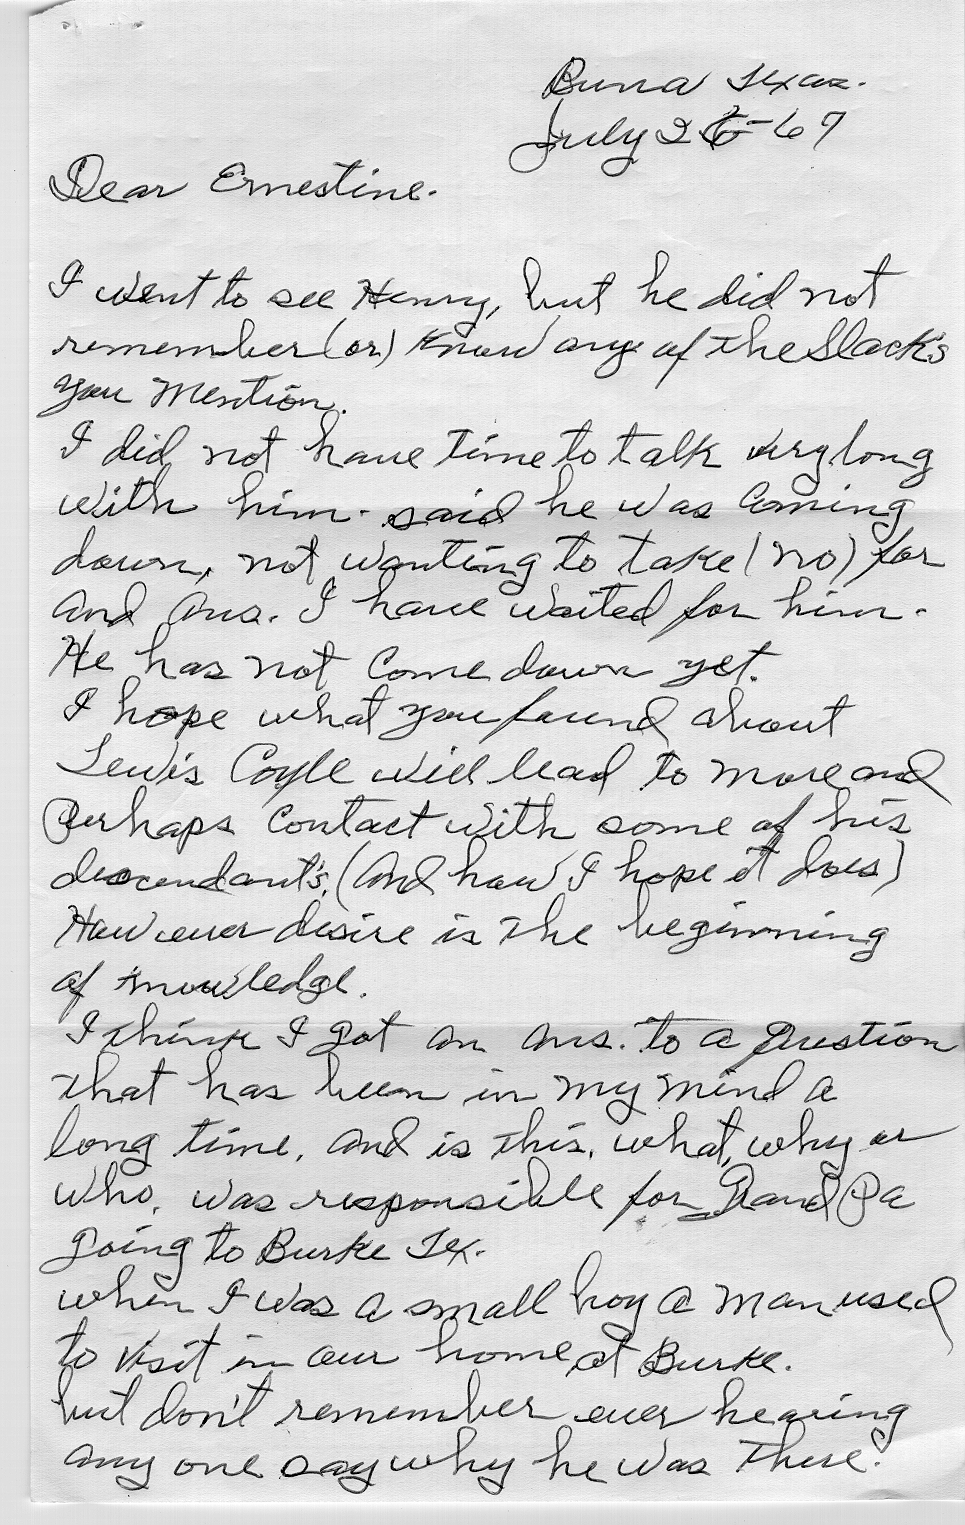 Buna Texas.
July 26-67
Dear Ernestine.
I went to see Henry, but he did not
remember (or) know any of the Slack's
you mention.
I did not have time to talk very long
with him. said he was coming
down, not wanting to take (no) for
and ans. I have waited for him.
He has not come down yet.
I hope what you found about
Lewis Coyle will lead to more and
Perhaps contact with some of his
descendant's, (and how I hope it does)
However desire is the beginning
of knowledge.
I think I got an ans. to a question
that has been in my mind a
long time, and is this, what, why or
who, was responsible for Grand Pa
going to Burke Tex.
when I was a small boy a man used
to visit in our home at Burke.
but don't remember ever hearing
any one say why he was there.